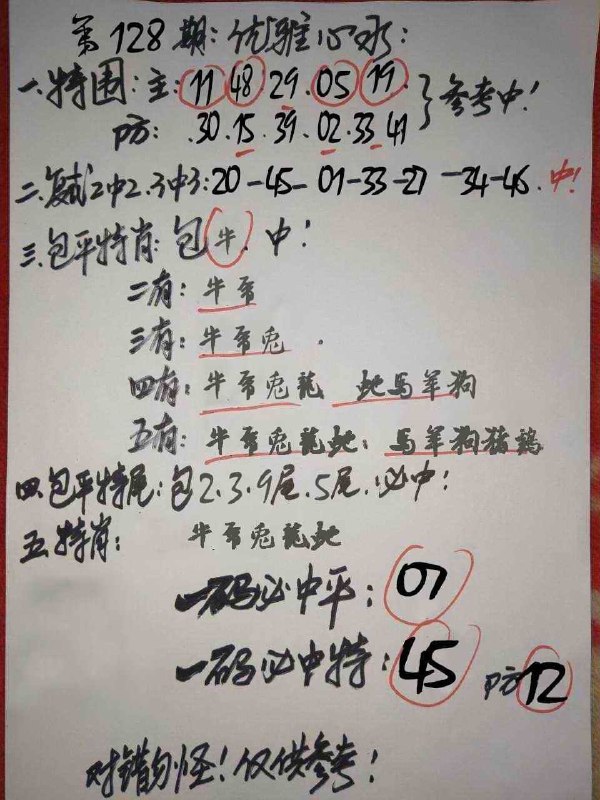 第128期:优雅心水:
一.特围:主:11 48.29.05 19
防:.30.15.39.02.33 41 }参考中!
二.复试2中2.3中3:20-45-01-33-27-34-46.中!
三.包平特肖:包牛.中!
二有:牛帝
三有:牛帝兔.
四有:牛帝兔龍 蛇馬羊狗
五有:牛帝兔龍蛇:馬羊狗猪鷄
四.包平特尾:包2.3.9尾.5尾.必中!
五.特肖: 牛帝兔龍蛇
一码必中平:07
一码必中特:45 防12
对错勿怪!仅供参考!